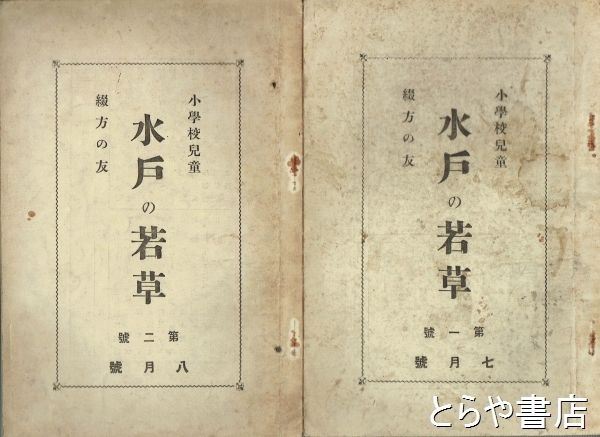 小學校兒童
綴方の友
水戶の若草
第一號
七月號
小學校兒童
綴方の友
水戶の若草
第二號
八月號
とらや書店